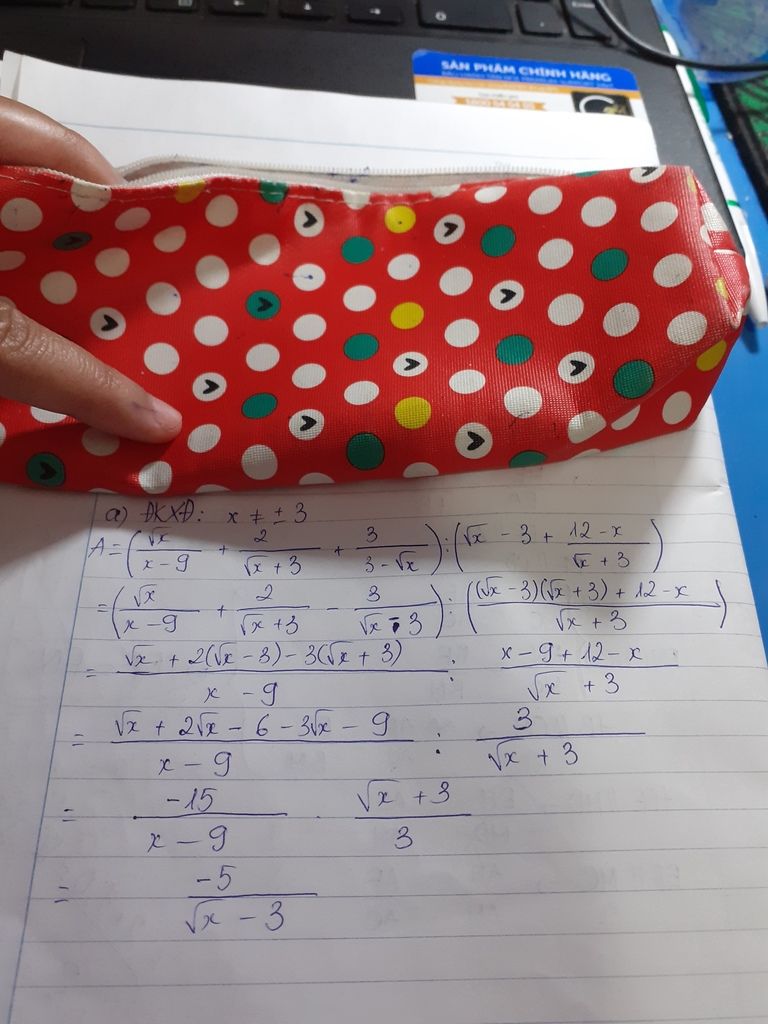 SẢN PHẨM CHÍNH HÃNG
a) ĐKXĐ: x ≠ ± 3
A = (√x/(x - 9) + 2/(√x + 3) + 3/(3 - √x)) : (√x - 3 + (12 - x)/(√x + 3))
= (√x/(x - 9) + 2/(√x + 3) - 3/(√x - 3)) : (((√x - 3)(√x + 3) + 12 - x)/(√x + 3))
= (√x + 2(√x - 3) - 3(√x + 3))/(x - 9) : (x - 9 + 12 - x)/(√x + 3)
= (√x + 2√x - 6 - 3√x - 9)/(x - 9) : 3/(√x + 3)
= -15/(x - 9) . (√x + 3)/3
= -5/(√x - 3)